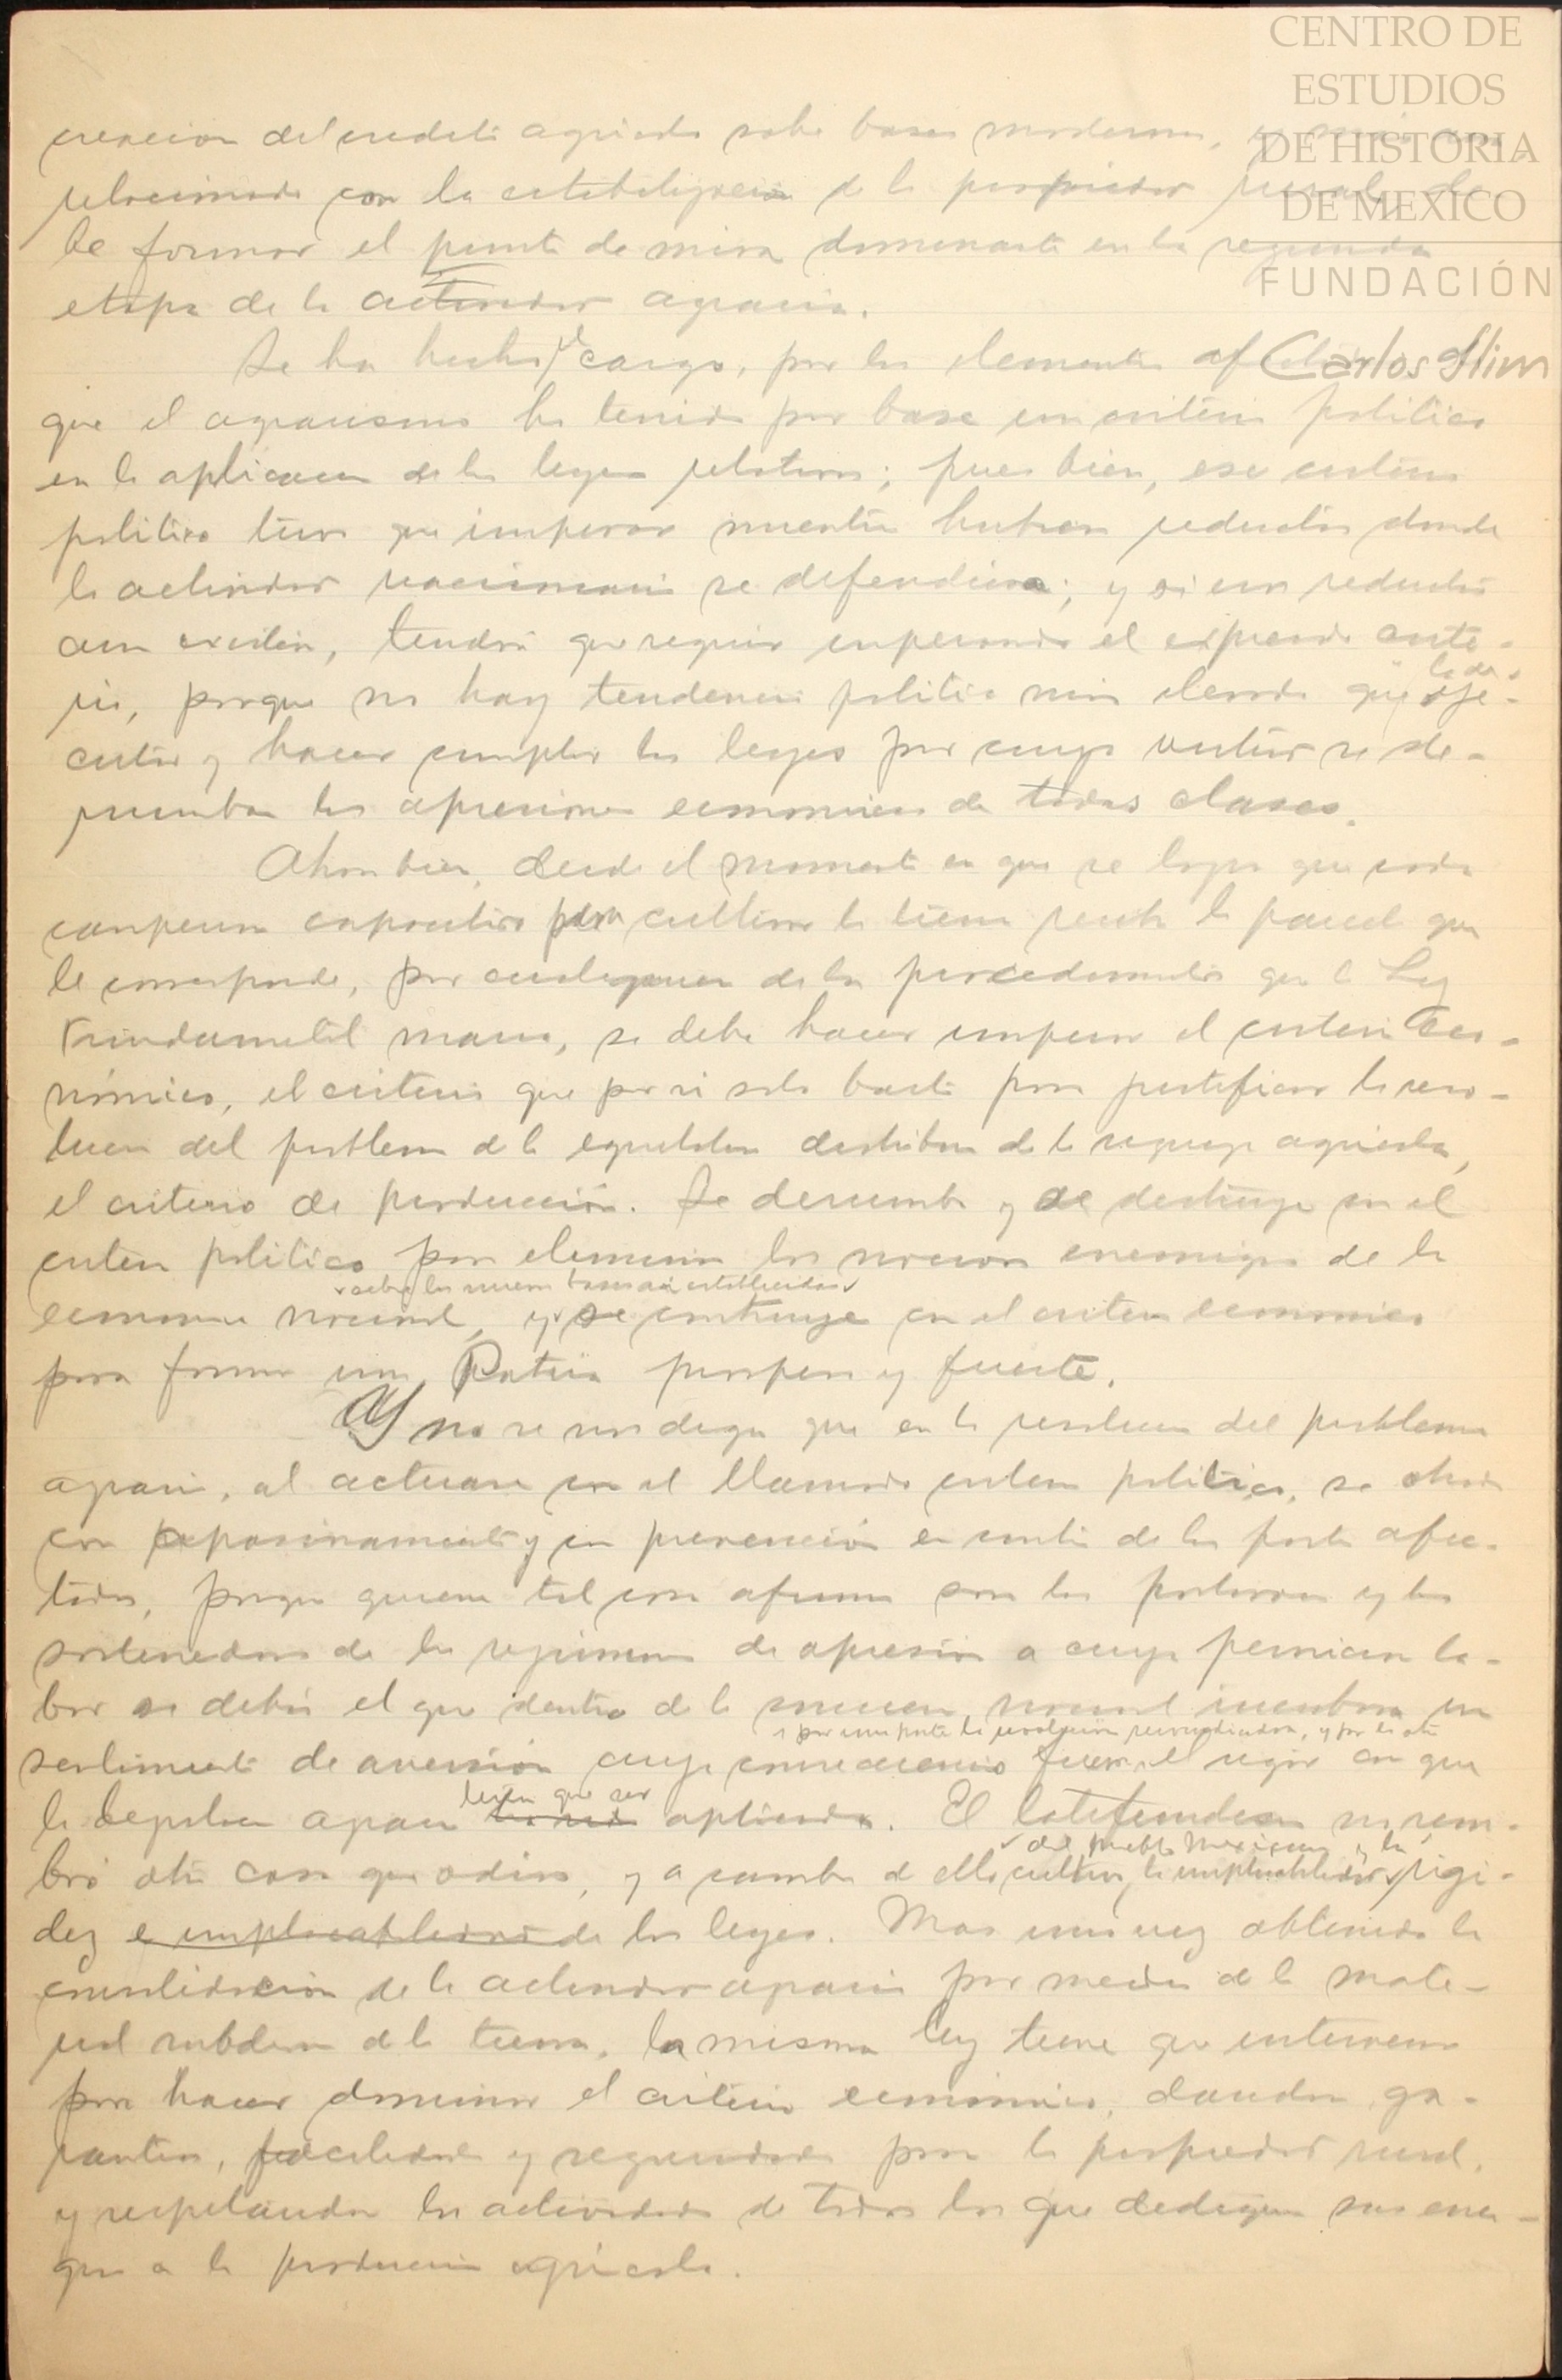 CENTRO DE
ESTUDIOS
DE HISTORIA
DE MEXICO
FUNDACIÓN
Carlos Slim
creación del credito agricola sobre bases modernas,
relacionada con la estabilización de la propiedad rural, de-
be formar el punto de mira dominante en la segunda
etapa de la actividad agraria.
Se ha hecho el cargo, por los elementos
que el agrarismo ha tenido por base un criterio politico
en la aplicacion de las leyes relativas; pues bien, ese criterio
politico tuvo que imperar mientras hubiera reductos donde
la actividad reaccionaria se defendiera; y si esos reductos
aun existen, tendrá que seguir imperando el expresado crite-
rio, porque no hay tendencia politica mas elevada que la de eje-
cutar y hacer cumplir las leyes por cuya virtud se de-
rrumban las opresiones economicas de todas clases.
Ahora bien, desde el momento en que se logra que cada
campesino capacitado para cultivar la tierra reciba la parcela que
le corresponde, por cualquiera de los procedimientos que la Ley
Fundamental marca, se debe hacer imperar el criterio eco-
nómico, el criterio que por si solo basta para justificar la reso-
lucion del problema de la equitativa distribucion de la riqueza agricola,
el criterio de producción. Se derrumba y se destruye con el
criterio politico para eliminar los nocivos enemigos de la
economia nacional, y se construye sobre las nuevas bases asi establecidas con el criterio economico
para formar una Patria prospera y fuerte.
Y no se nos diga que en la resolucion del problema
agrario, al actuarse con el llamado criterio politico, se obra
con apasionamiento y con prevención en contra de las partes afec-
tadas, porque quienes tal cosa afirman son los partidarios y los
sostenedores de los regimenes de opresión a cuya perniciosa la-
bor se debió el que dentro de la conciencia nacional incubara un
sentimiento de aversión cuya consecuencia fueron por una parte la revolución reivindicadora, y por la otra el rigor con que
la legislacion agraria tenia que ser aplicada. El latifundismo no sem-
bró otra cosa que odios, y a cambio de ello cultivó la implacabilidad del pueblo mexicano y la rigi-
dez e implacabilidad de las leyes. Mas una vez obtenida la
consolidacion de la actividad agraria por medio de la mate-
rial subdivision de la tierra, la misma ley tiene que intervenir
para hacer dominar el criterio economico, dando ga-
rantias, facilidades y seguridades para la propiedad rural,
y respetando las actividades de todos los que dediquen sus ener-
gias a la produccion agricola.